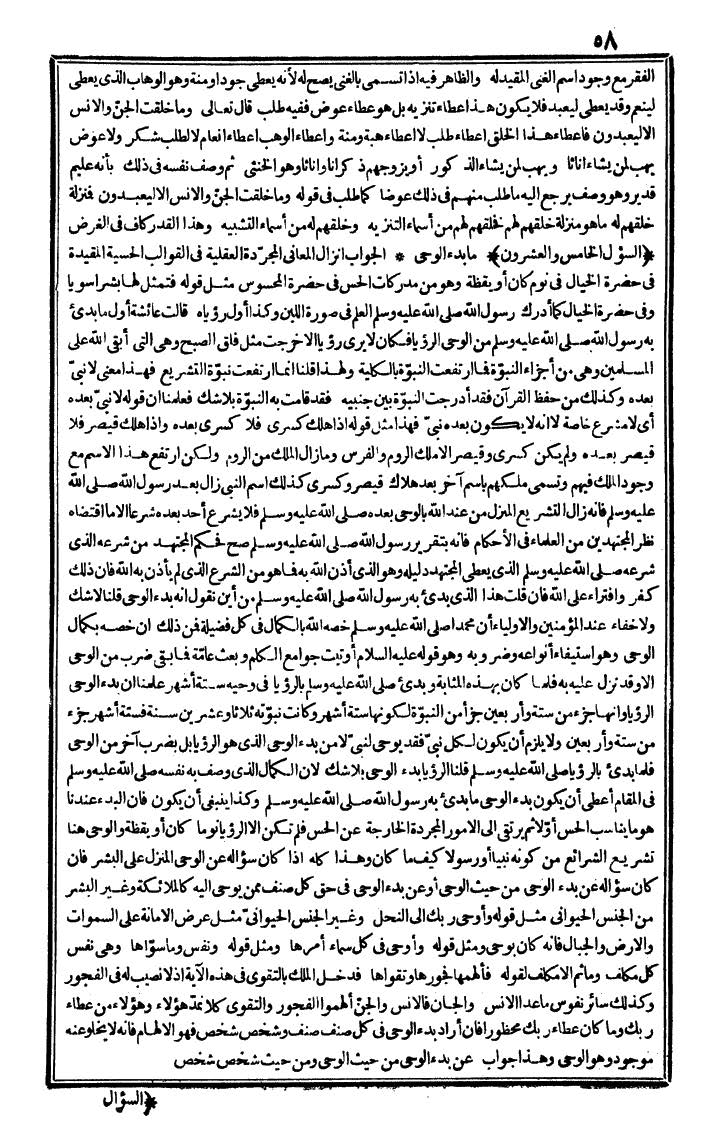 ٥٨
الفقر مع وجود اسم الغنى المقيد له والظاهر فيه اذا تسمى بالغنى يصح له لأنه يعطى جودا ومنة وهو الوهاب الذى يعطى
لينعم وقد يعطى ليعبد فلا يكون هذا عطاء تنزيه بل هو عطاء عوض ففيه طلب قال تعالى وما خلقت الجنّ والانس
الا ليعبدون فاعطاء هذا الخلق اعطاء طلب لا اعطاء هبة ومنة واعطاء الوهب اعطاء انعام لا لطلب شكر ولا عوض
يهب لمن يشاء اناثا ويهب لمن يشاء الذكور أو يزوجهم ذكرانا واناثا وهو الخنثى ثم وصف نفسه فى ذلك بأنه عليم
قدير وهو وصف يرجع اليه ما طلب منهم فى ذلك عوضا كما طلب فى قوله وما خلقت الجنّ والانس الا ليعبدون فنزلة
خلقهم له ما هو منزلة خلقهم لهم فخلقهم لهم من أسماء التنزيه وخلقهم له من أسماء التشبيه وهذا القدر كاف فى الغرض
﴿السؤال الخامس والعشرون﴾ ما بدء الوحى * الجواب انزال المعانى المجرّدة العقلية فى القوالب الحسية المقيدة
فى حضرة الخيال فى نوم كان أو يقظة وهو من مدركات الحس فى حضرة المحسوس مثل قوله فتمثل لها بشرا سويا
وفى حضرة الخيال كما أدرك رسول الله صلى الله عليه وسلم العلم فى صورة اللبن وكذا أول رؤياه قالت عائشة أول ما بدئ
به رسول الله صلى الله عليه وسلم من الوحى الرؤيا فكان لا يرى رؤيا الا خرجت مثل فلق الصبح وهى التى أبقى الله على
المسلمين وهى من أجزاء النبوّة فما ارتفعت النبوّة بالكلية ولهذا قلنا انما ارتفعت نبوّة التشريع فهذا معنى لا نبىّ
بعده وكذلك من حفظ القرآن فقد أدرجت النبوّة بين جنبيه فقد قامت به النبوّة بلا شك فعلمنا ان قوله لا نبىّ بعده
أى لا مشرع خاصة لا انه لا يكون بعده نبىّ فهذا مثل قوله اذا هلك كسرى فلا كسرى بعده واذا هلك قيصر فلا
قيصر بعده ولم يكن كسرى وقيصر الا ملك الروم والفرس وما زال الملك من الروم ولكن ارتفع هذا الاسم مع
وجود الملك فيهم وتسمى ملكهم باسم آخر بعد هلاك قيصر وكسرى كذلك اسم النبى زال بعد رسول الله صلى الله
عليه وسلم فانه زال التشريع المنزل من عند الله بالوحى بعده صلى الله عليه وسلم فلا يشرع أحد بعده شرعا الا ما اقتضاه
نظر المجتهدين من العلماء فى الأحكام فانه بتقرير رسول الله صلى الله عليه وسلم صح فحكم المجتهد من شرعه الذى
شرعه صلى الله عليه وسلم الذى يعطى المجتهد دليله وهو الذى أذن الله به فما هو من الشرع الذى لم يأذن به الله فان ذلك
كفر وافتراء على الله فان قلت هذا الذى بدئ به رسول الله صلى الله عليه وسلم من أين نقول انه بدء الوحى قلنا لا شك
ولا خفاء عند المؤمنين والاولياء أن محمدا صلى الله عليه وسلم خصه الله بالكمال فى كل فضيلة فمن ذلك ان خصه بكمال
الوحى وهو استيفاء أنواعه وضروبه وهو قوله عليه السلام أوتيت جوامع الكلم وبعث عامّة فما بقى ضرب من الوحى
الا وقد نزل عليه به فلما كان بهذه المثابة وبدئ صلى الله عليه وسلم بالرؤيا فى وحيه ستة أشهر علمنا ان بدء الوحى
الرؤيا وانها جزء من ستة وأربعين جزأ من النبوّة لكونها ستة أشهر وكانت نبوّته ثلاثا وعشرين سنة فستة أشهر جزء
من ستة وأربعين ولا يلزم أن يكون لكل نبىّ فقد يوحى لنبىّ لا من بدء الوحى الذى هو الرؤيا بل بضرب آخر من الوحى
فلما بدئ بالرؤيا صلى الله عليه وسلم قلنا الرؤيا بدء الوحى بلا شك لان الكمال الذى وصف به نفسه صلى الله عليه وسلم
فى المقام أعطى أن يكون بدء الوحى ما بدئ به رسول الله صلى الله عليه وسلم وكذا ينبغى أن يكون فان البدء عندنا
هو ما يناسب الحس أوّلا ثم يرتقى الى الامور المجردة الخارجة عن الحس فلم تكن الا الرؤيا نوما كان أو يقظة والوحى هنا
تشريع الشرائع من كونه نبيا أو رسولا كيف ما كان وهذا كله اذا كان سؤاله عن الوحى المنزل على البشر فان
كان سؤاله عن بدء الوحى من حيث الوحى أو عن بدء الوحى فى حق كل صنف ممن يوحى اليه كالملائكة وغير البشر
من الجنس الحيوانى مثل قوله وأوحى ربك الى النحل وغير الجنس الحيوانىّ مثل عرض الامانة على السموات
والارض والجبال فانه كان بوحى ومثل قوله وأوحى فى كل سماء أمرها ومثل قوله ونفس وما سوّاها وهى نفس
كل مكلف وما ثم الا مكلف لقوله فألهمها فجورها وتقواها فدخل الملك بالتقوى فى هذه الآية اذ لا نصيب له فى الفجور
وكذلك سائر نفوس ما عدا الانس والجان فالانس والجنّ ألهموا الفجور والتقوى كلا نمدّ هؤلاء وهؤلاء من عطاء
ربك وما كان عطاء ربك محظورا فان أراد بدء الوحى فى كل صنف صنف وشخص شخص فهو الالهام فانه لا يخلو عنه
موجود وهو الوحى وهذا جواب عن بدء الوحى من حيث الوحى ومن حيث شخص شخص
﴿السؤال